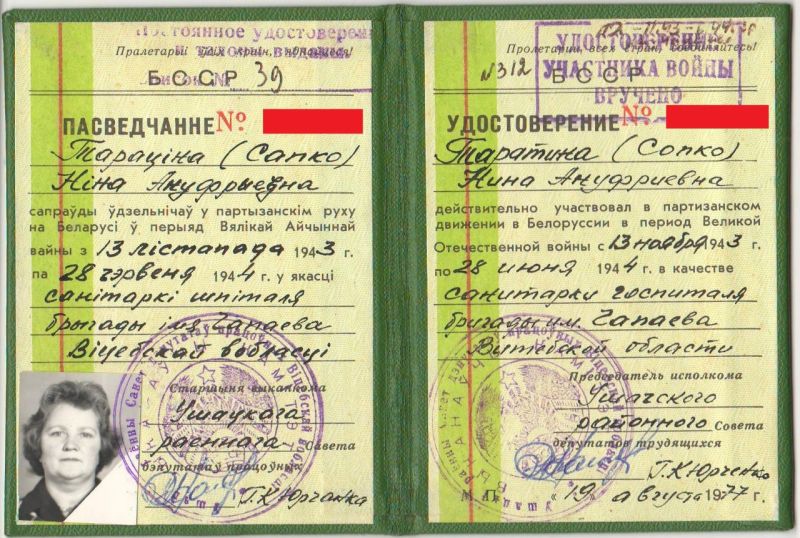 Постоянное удостоверение
Пралетарыі ўсіх краін, яднайцеся!
БССР
39
ПАСВЕДЧАННЕ №
Тараціна (Сапко)
Ніна Ануфрыеўна
сапраўды ўдзельнічаў у партызанскім руху
на Беларусі ў перыяд Вялікай Айчыннай
вайны з 13 лістапада 1943 г.
па 28 чэрвеня 1944 г. у якасці
санітаркі шпіталя
брыгады імя Чапаева
Віцебскай вобласці
Старшыня выканкома
Ушацкага
раённага Савета
дэпутатаў працоўных
Г.К.Юрчанка
Пролетарии всех стран, соединяйтесь!
УДОСТОВЕРЕНИЕ
УЧАСТНИКА ВОЙНЫ
ВРУЧЕНО
№312
БССР
УДОСТОВЕРЕНИЕ №
Таратина (Сопко)
Нина Ануфриевна
действительно участвовал в партизанском
движении в Белоруссии в период Великой
Отечественной войны с 13 ноября 1943 г.
по 28 июня 1944 г. в качестве
санитарки госпиталя
бригады им. Чапаева
Витебской области
Председатель исполкома
Ушачского
районного Совета
депутатов трудящихся
Г.К.Юрченко
М. П. "19" августа 1977 г.